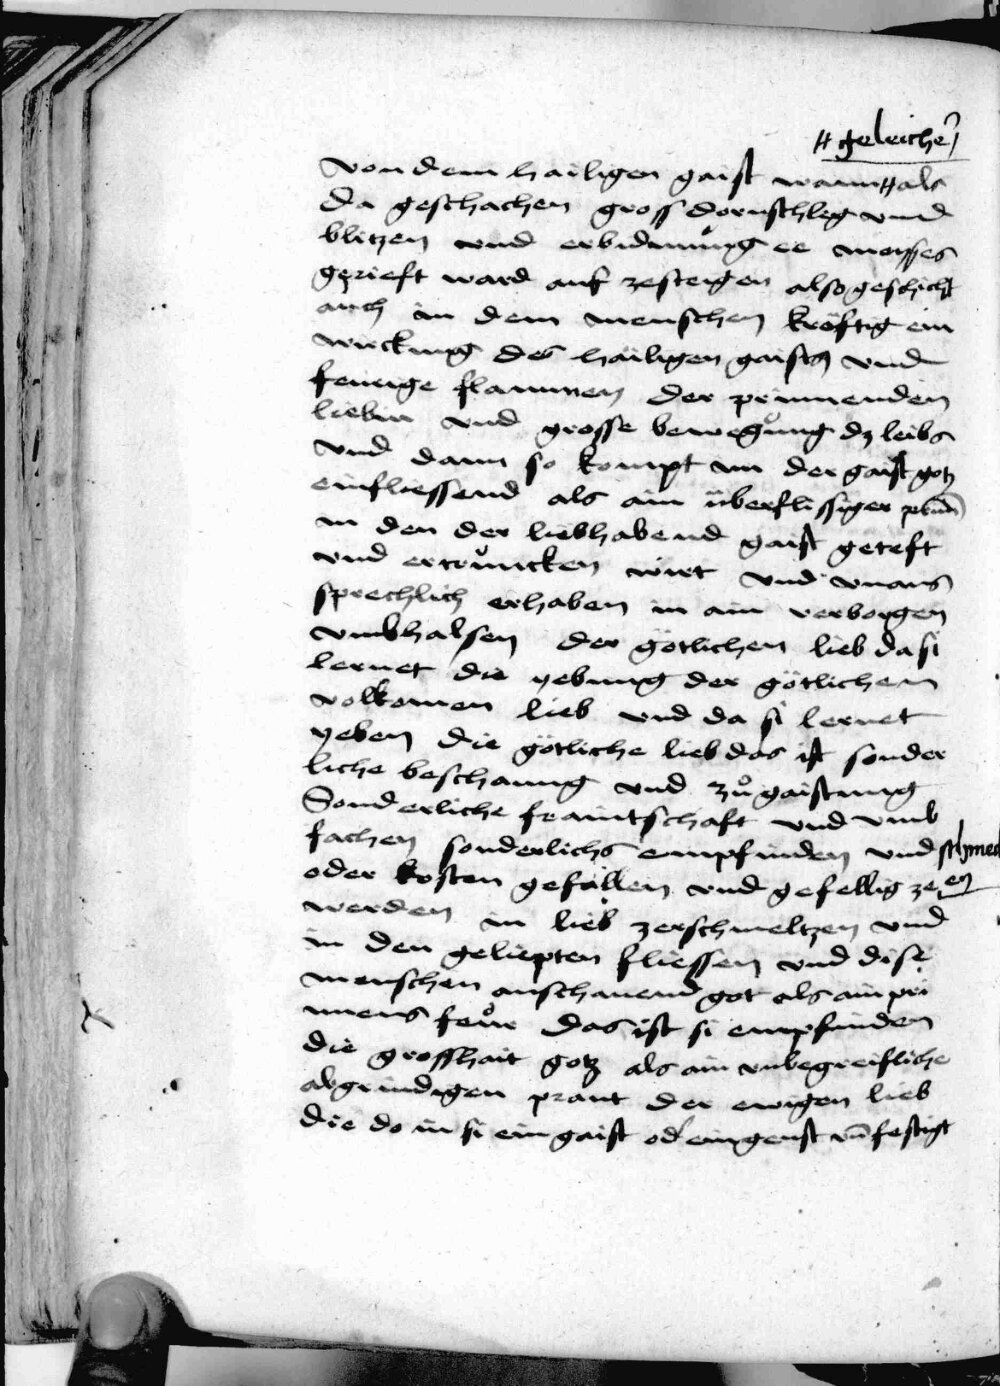 # geleicher
von dem hailigen gaist wann # als
da geschachen gross dornschleg vnd
blitzen vnd erbidmung ee moisses
gerieft ward auf zesteigen also geschicht
auch in dem menschen kreftig ein
wirckung des hailigen gaistz vnd
feurige flammen der prinnenden
liebin vnd grosse bewegung dz leibs
vnd dann so kompt im der gaist gotz
einfliessend als ain überflissiger prun
in den der liebhabend gaist geteft
vnd ertrůncken wirt vnd vnaus
sprechlich erhaben in ain verborgen
vmbhalsen der götlichen lieb da si
lernet die yebung der götlichen
volkomen lieb vnd da si lernet
yeben die götliche lieb das ist sonder
liche beschaung vnd zůgaistung
Sonderliche fraintschaft vnd vmb
fachen sonderlichs empfinden vnd schmeck
en
oder kosten gefallen vnd gefellig ze
werden in lieb zerschmeltzen vnd
in den geliepten fliessen vnd dise
menschen anschauend got als ain pri
nnens feůr das ist si empfinden
die grosshait gotz als ain vnbegreifliche
abgrindigen prant der ewigen lieb
die do in si ein gaist od eingenst vn̄ festigt